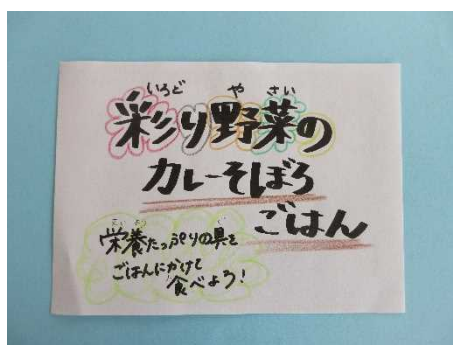 いろど や さい
彩り野菜の
カレーそぼろ
ごはん
えいよう
栄養たっぷりの具を
ごはんにかけて
食べよう!